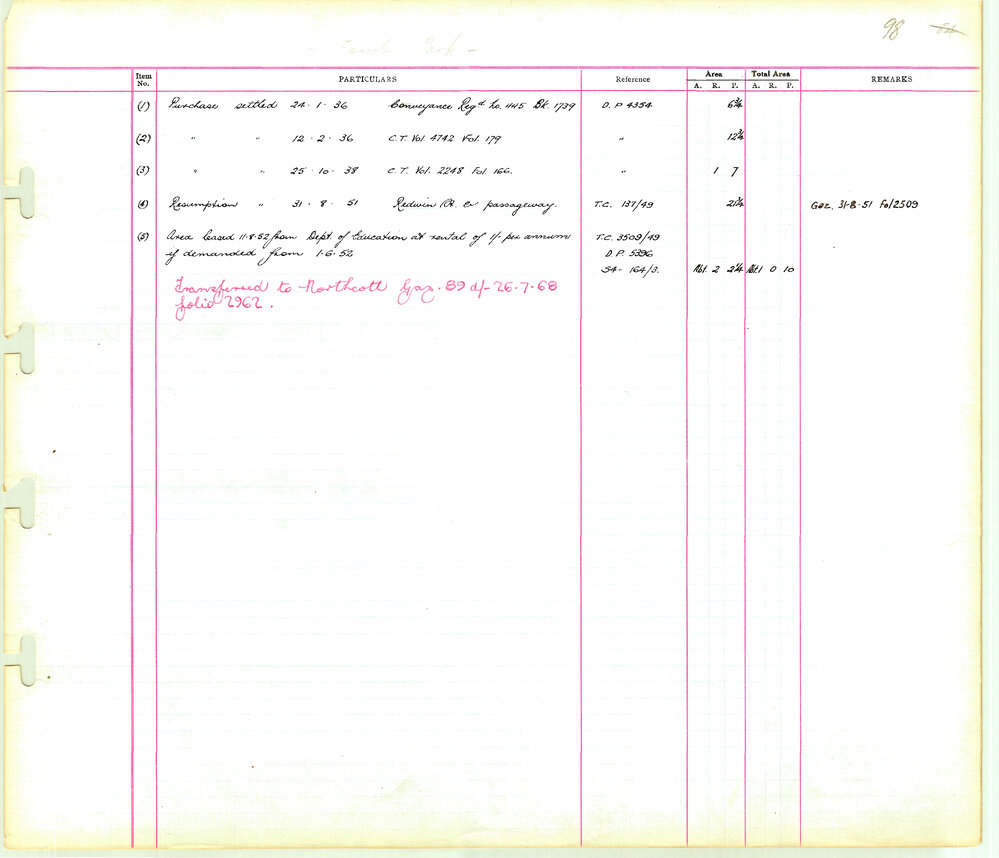 98 54
Park
Item No. PARTICULARS Reference Area Total Area REMARKS
A. R. P. A. R. P.
(1) Purchase settled 24·1·36 Conveyance Regd. No. 445 Bk. 1739 D.P 4354 6¾
(2) " " 12·2·36 C.T. Vol. 4742 Fol. 179 " 12¾
(3) " " 25·10·38 C.T. Vol. 2248 Fol. 166. " 1 7
(4) Resumption " 31·8·51 Redwin St. & passageway. T.C. 137/49 21¼ Gaz. 31-8-51 Fol 2509
(5) Area leased 11·8·52 from Dept. of Education at rental of 1/- per annum T.C. 3509/49
if demanded from 1·6·52 D.P. 5396
54- 164/3. Abt. 2 2¼ Abt 1 0 10
Transferred to Northcott Gaz. 89 d/- 26·7·68
folio 2962.